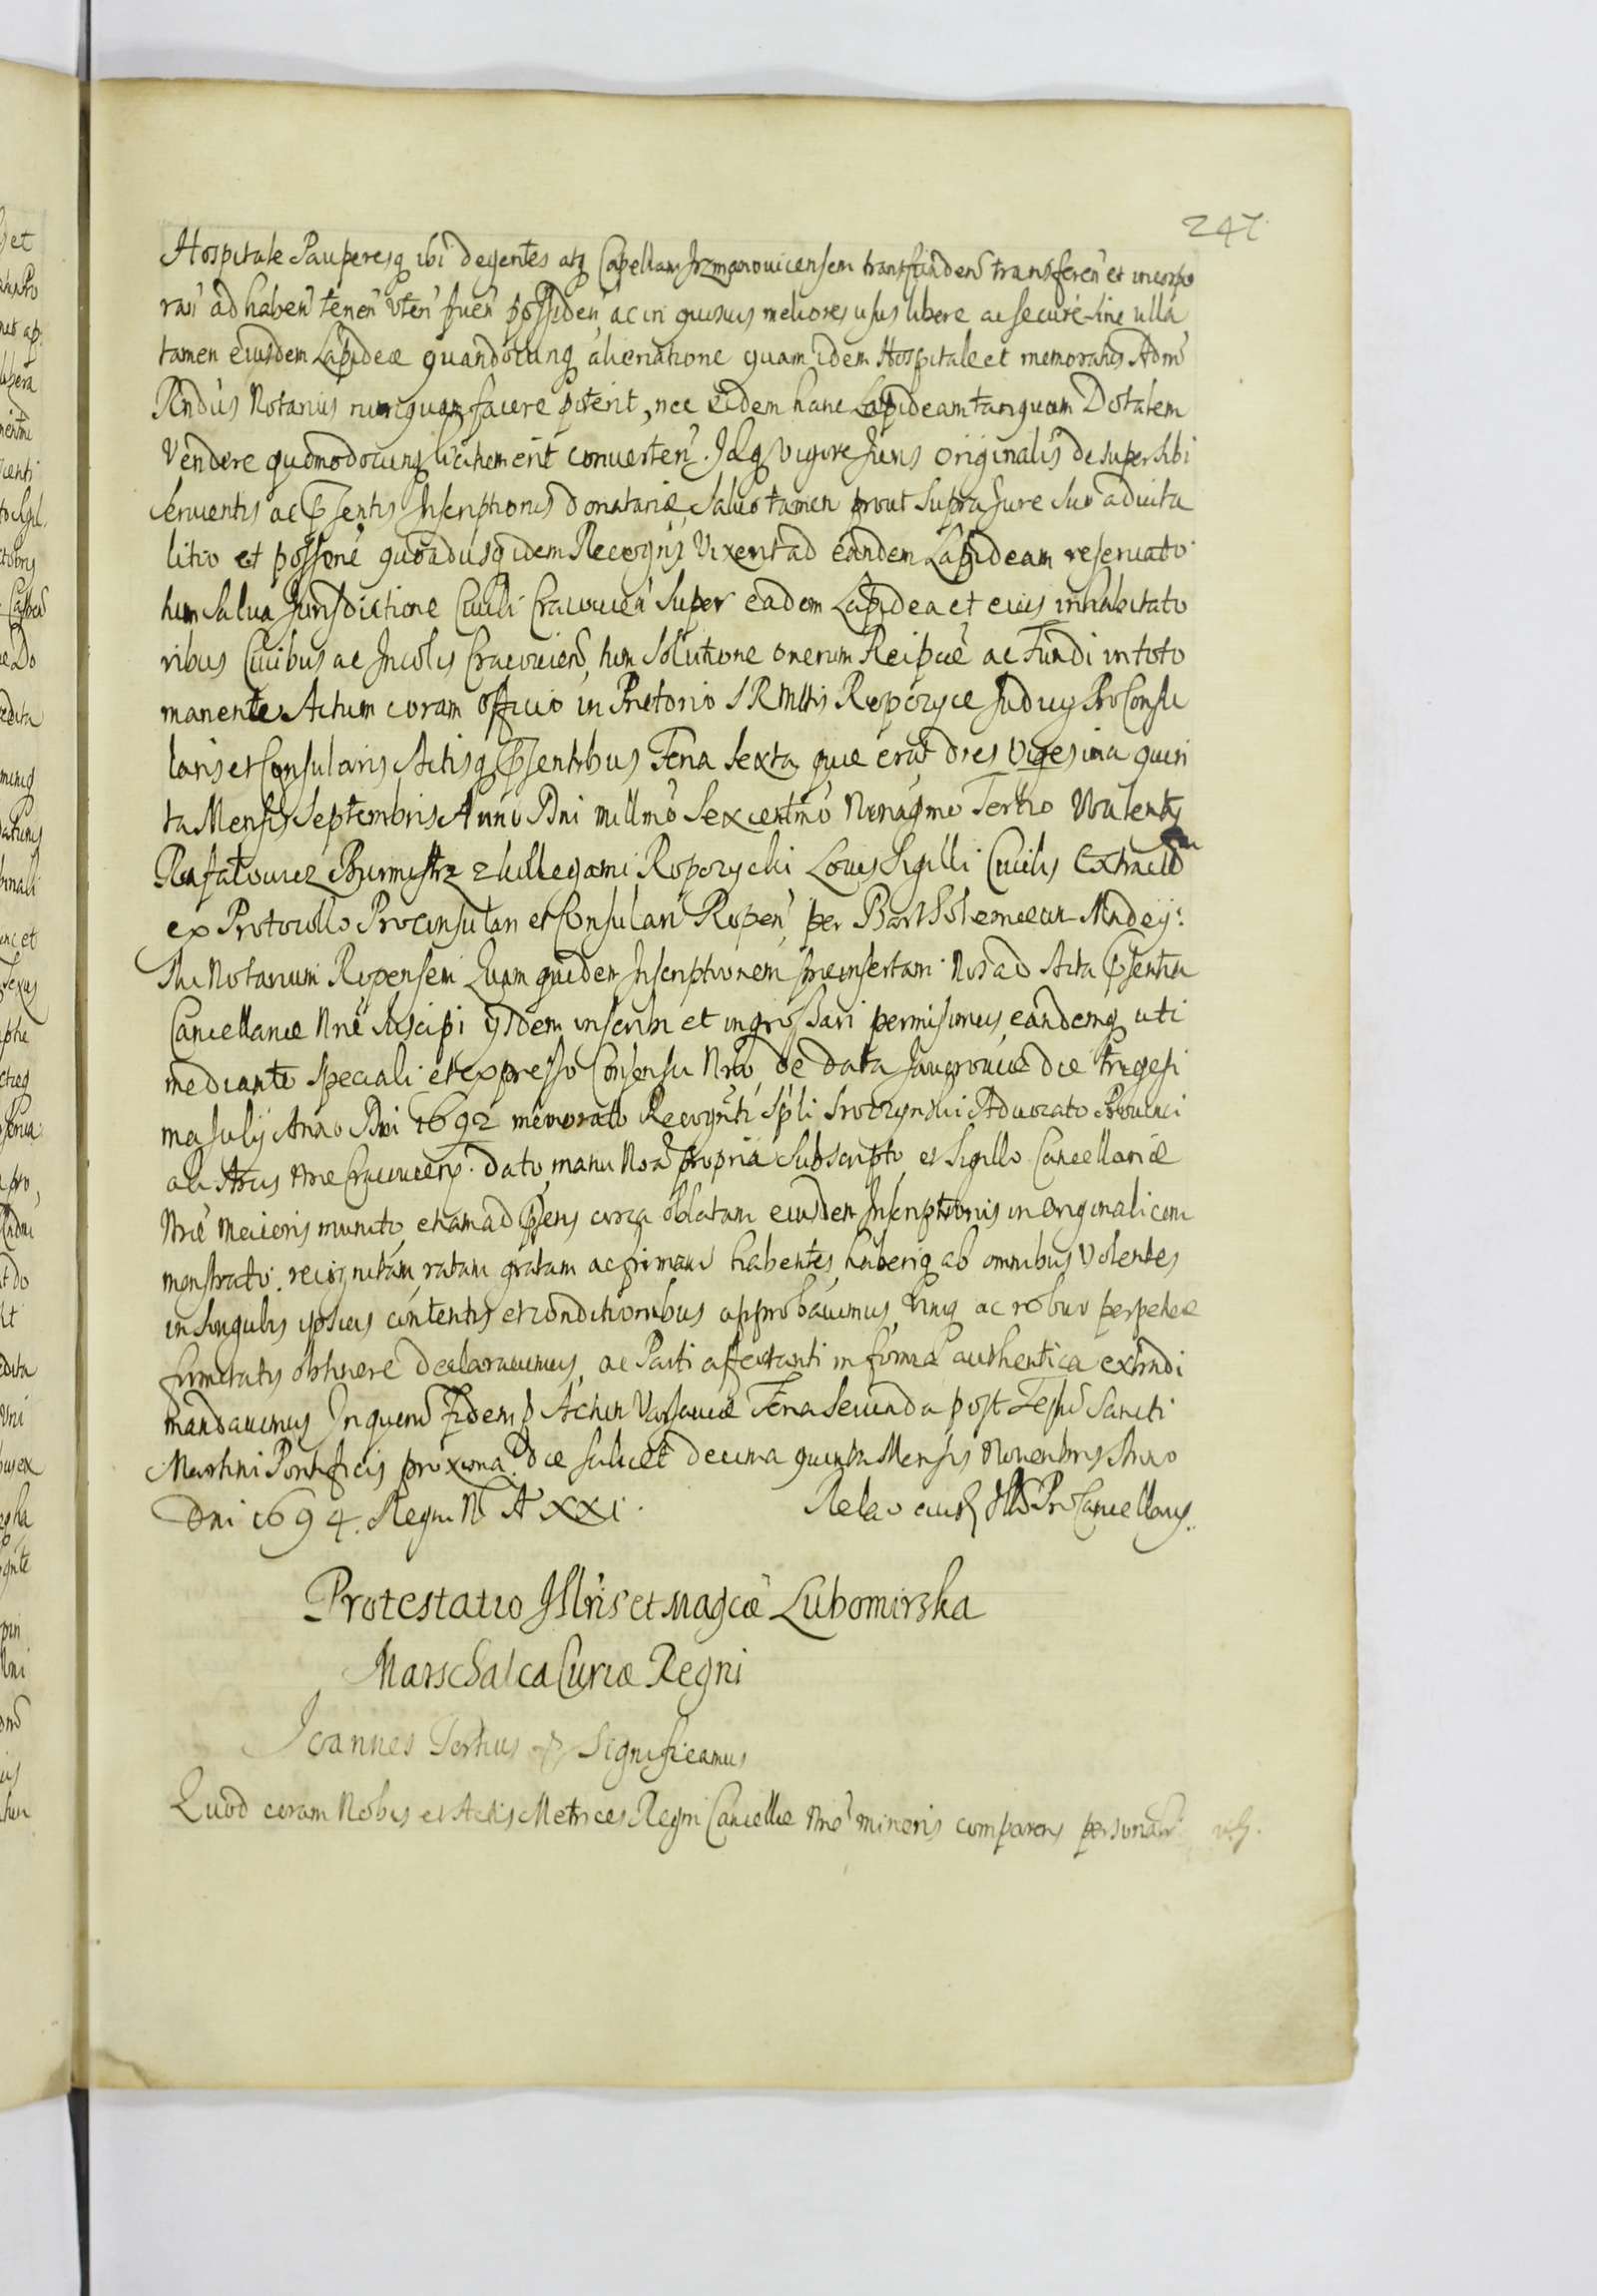 247
Hospitale Pauperesq ibi degentes atq Capellam Irzmanovicensem transfunden transferen et incorpo
ran ad haben tenen Uten fruen possiden ac in quosvis meliores usus libere ac secure sine ulla
tamen eiusdem Lapideæ quandocunq alienatione quam idem Hospitale et memoratus Adm
Rndus Notarius nunquam facere poterit, nec eidem hanc Lapideam tanquam Dotalem
Vendere quomodocunq licitum erit converten. Idq vigore Juris originalis desuper sibi
servientis ac Psentis Inscriptionis donatoriæ, salvo tamen prout supra Jure suo advita
litio et possone quoadusq idem Recogns Vixerit ad eandem Lapideam reservato
tum salva Jurisdictione Civili Cracovien super eadem Lapidea et eius inhabitato
ribus Civibus ac Incolis Cracovien, tum solutione onerum Reipcæ ac Fundi in toto
manente. Actum coram officio in Prætorio S R Mttis Ropczyce Judicy ProConsu
laris et Consularis Actisq Psentibus Feria Sexta quæ erat dies Vigesima quin
ta Mensis Septembris Anno Dni millmo Sexcentmo Nonagmo Tertio Walenty
Rafałowicz Burmistrz z kollegami Ropczyckii Locus Sigilli Civilis Extractu
ex Protocollo Proconsulari et Consulari Ropcen per Bartholemæum Madey
Notarium Ropcensem Quam quidem Inscriptionem præinsertam Nos ad Acta Psentia
Cancellariæ Nræ suscipi ysdem inscribi et ingrossari permisimus, eandemq uti
mediante speciali et expresso Consensu Nro, de data Javoroviæ die trigesi
ma July Anno Dni 1692 memorato Recognti Spli Sroczynski Advocato Provinci
ali Arcis Nræ Cracoviens. dato, manu Nra propria subscripto et Sigillo Cancellariæ
Nræ Maioris munito, etiam ad Psens circa oblatam eiusdem Inscriptionis in originali com
monstrato. recognitam, ratam gratam ac firmam habentes, haberiq ab omnibus Volentes
in singulis ipsius contentis et conditionibus approbavimus, Vimq ac robur perpetuæ
firmitatis obtinere declaravimus, ac Parti affectanti in forma authentica extradi
mandavimus In quorum fidem p Actum Varsaviæ Feria Secunda post Festu Sancti
Martini Pontificis proxima die scilicet decima quinta Mensis Novembris Anno
Dni 1694. Regni N A XXI.
Relao eiusd Illd ProCancellary.
Protestatio Illris et Magcæ Lubomirska
Marschalca Curiæ Regni
Joannes Tertius & Significamus
Quod coram Nobis et Actis Metrices Regni Cancellæ Nræ minoris comparens personalr